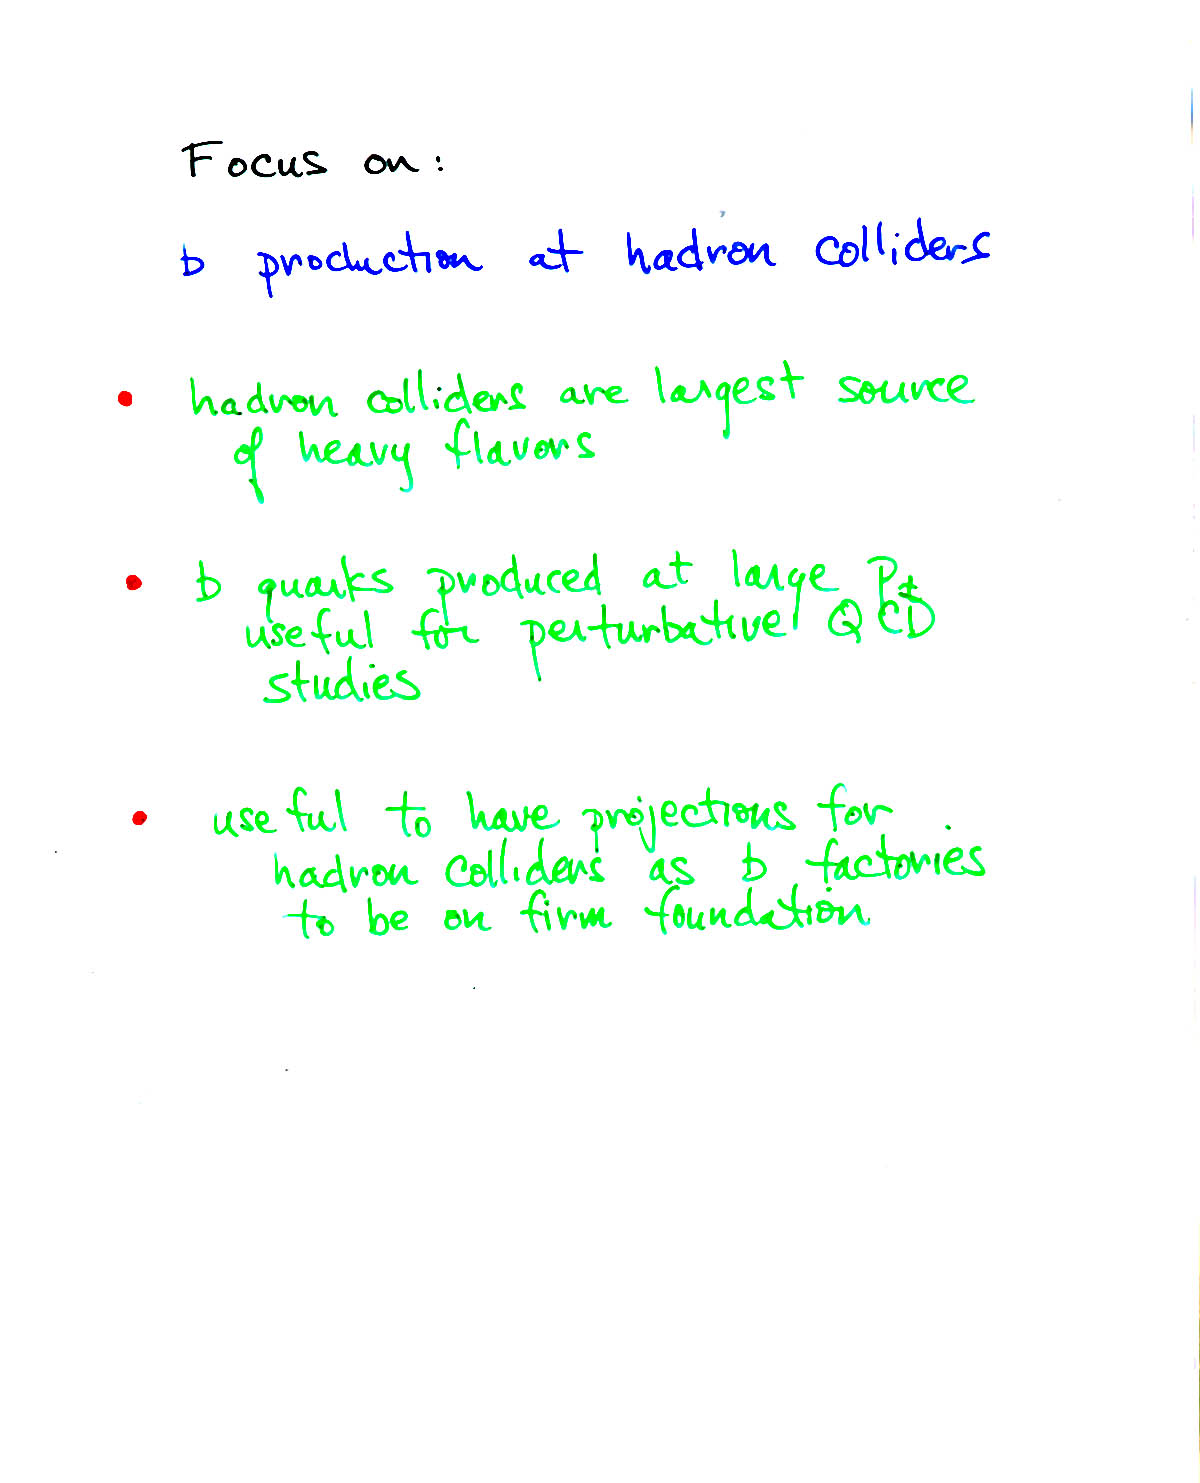 Focus on:
b production at hadron colliders
• hadron colliders are largest source
of heavy flavors
• b quarks produced at large Pt
useful for perturbative QCD
studies
• useful to have projections for
hadron colliders as b factories
to be on firm foundation